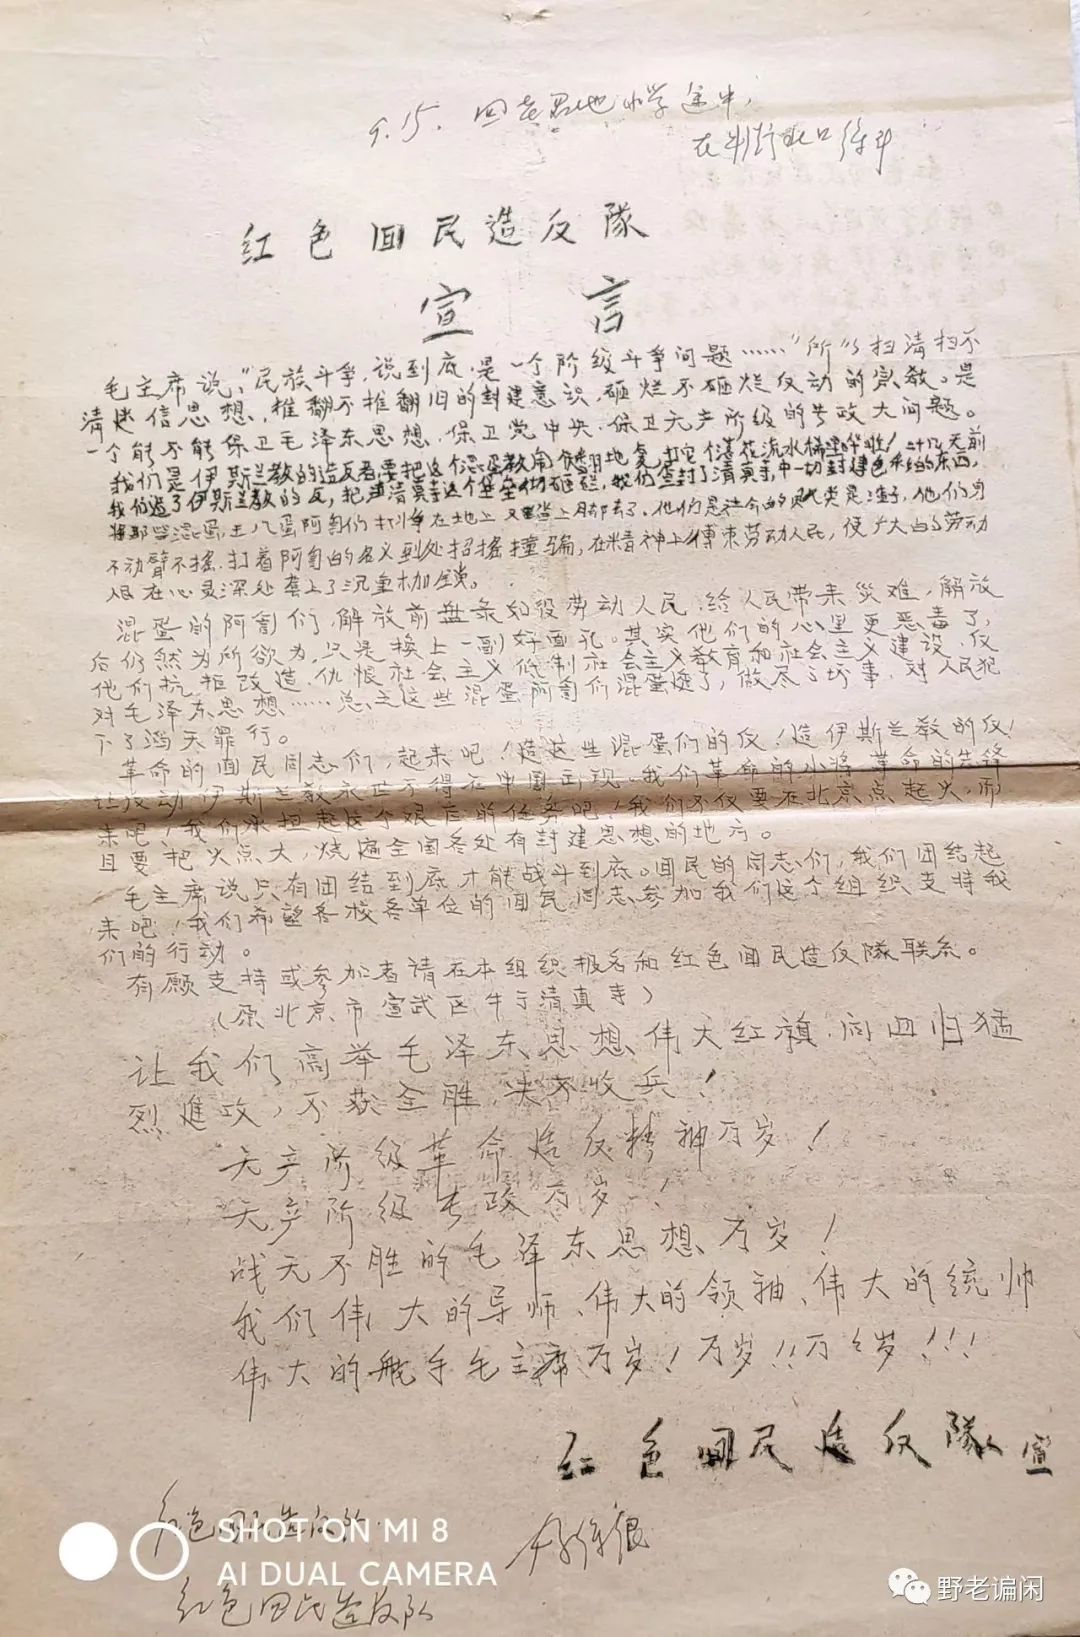 9.15.回老君地小学途中,
在
红色回民造反隊
宣言
毛主席说,"民族斗争,说到底,是一个阶级斗争问题……"所以扫清扫不
清迷信思想、推翻不推翻旧的封建意识,砸烂不砸烂反动的宗教。是
一个能不能保卫毛泽东思想、保卫党中央、保卫无产阶级的专政大问题。
我们是伊斯兰教的造反者要把这个混蛋教闹个翻地复,打它个落花流水稀里哗啦!几天前
我们造了伊斯兰教的反,把清真寺这个堡垒彻砸烂,我们查封了清真寺中一切封建色彩的东西,
将那些混蛋王八蛋阿訇们打倒在地上又踏上只脚去了。他们是社会的渣子,他们身
不动臂不摇,打着阿訇的名义到处招搖撞骗,在精神上缚束劳动人民,使广大的劳动
人民在心灵深处套上了沉重枷锁。
混蛋的阿訇们,解放前盘录如役劳动人民,给人民带来災难,解放
后仍然为所欲为,只是换上一副好面孔。其实他们的心里更恶毒了,
他们抗拒改造、仇恨社会主义低制社会主义教育和社会主义建设,仅
对毛泽东思想……总之这些混蛋阿訇们混蛋透了,做尽了坏事,对人民犯
下了滔天罪行。
革命的回民同志们,起来吧!造这些混蛋们的反!造伊斯兰教的反!
让反动伊斯兰教永世不得在中国出现。我们革命的小将、革命的先锋
来吧!我们承担起这个艰巨的任务吧!我们不仅要在北京点起火,而
且要把火点大,烧遍全国各处有封建思想的地方。
毛主席说只有团结到底才能战斗到底。回民的同志们,我们团结起
来吧!我们希望各校各单位的回民同志参加我们这个组织支持我
们的行动。
有愿支持或参加者请在本组织报名和红色回民造反隊联系。
(原北京市宣武区牛子清真寺)
让我们高举毛泽东思想伟大红旗,向四旧猛
烈進攻,不获全胜,决不收兵!
无产阶级革命造反精神万岁!
无产阶级专政万岁!
战无不胜的毛泽东思想万岁!
我们伟大的导师、伟大的领袖、伟大的统帅
伟大的舵手毛主席万岁!万岁!!万々岁!!!
红色回民造反隊 宣
红色回民造反队
红色回民造反队
SHOT ON MI 8
AI DUAL CAMERA
野老谝闲